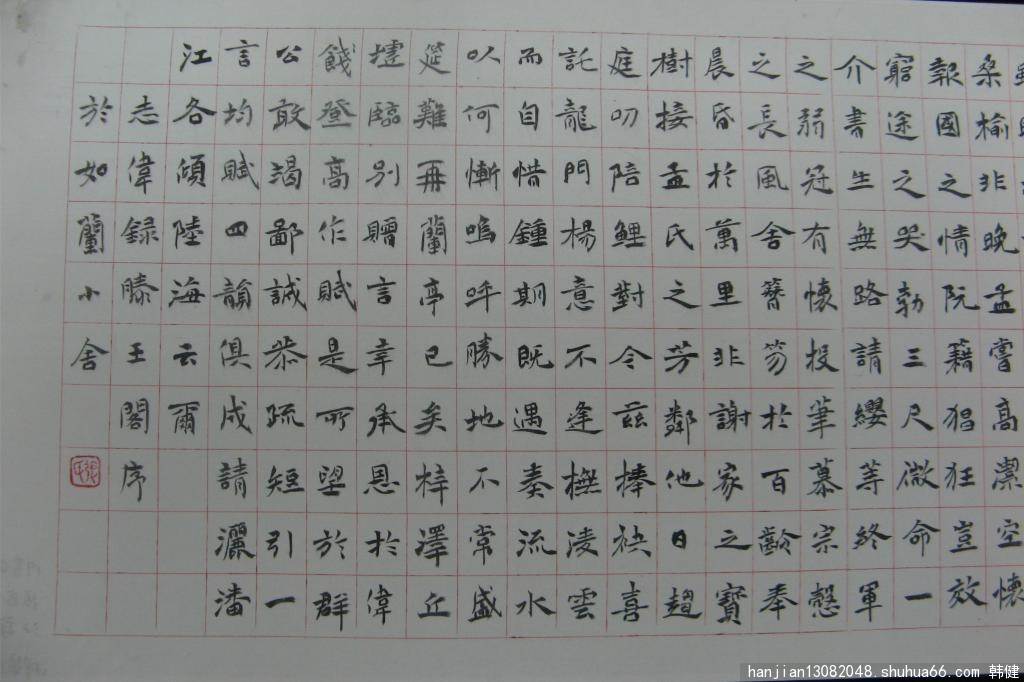 桑榆非晚孟嘗高潔空懷
報國之情阮籍猖狂豈效
窮途之哭勃三尺微命一
介書生無路請纓等終軍
之弱冠有懷投筆慕宗慤
之長風舍簪笏於百齡奉
晨昏於萬里非謝家之寶
樹接孟氏之芳鄰他日趨
庭叨陪鯉對今茲捧袂喜
託龍門楊意不逢撫凌雲
而自惜鍾期既遇奏流水
以何慚嗚呼勝地不常盛
筵難再蘭亭已矣梓澤丘
墟臨別贈言幸承恩於偉
餞登高作賦是所望於群
公敢竭鄙誠恭疏短引一
言均賦四韻俱成請灑潘
江各傾陸海云爾
志偉録滕王閣序
於如蘭小舍
hanjian13082048.shuhua66.com 韩健